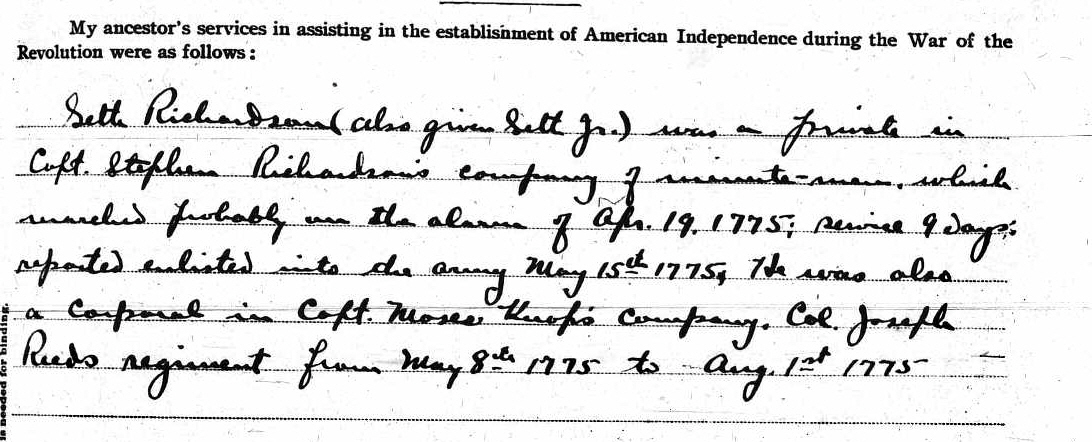 My ancestor's services in assisting in the establishment of American Independence during the War of the
Revolution were as follows:
Seth Richardson (also given Sett Jr.) was a private in
Capt. Stephen Richardson's company of minute-men, which
marched probably on the alarm of Apr. 19, 1775; service 9 days;
reported enlisted into the army May 15th 1775, He was also
a Corporal in Capt. Moses Knap's Company, Col. Joseph
Reeds regiment from May 8th 1775 to Aug. 1st 1775
is needed for binding.